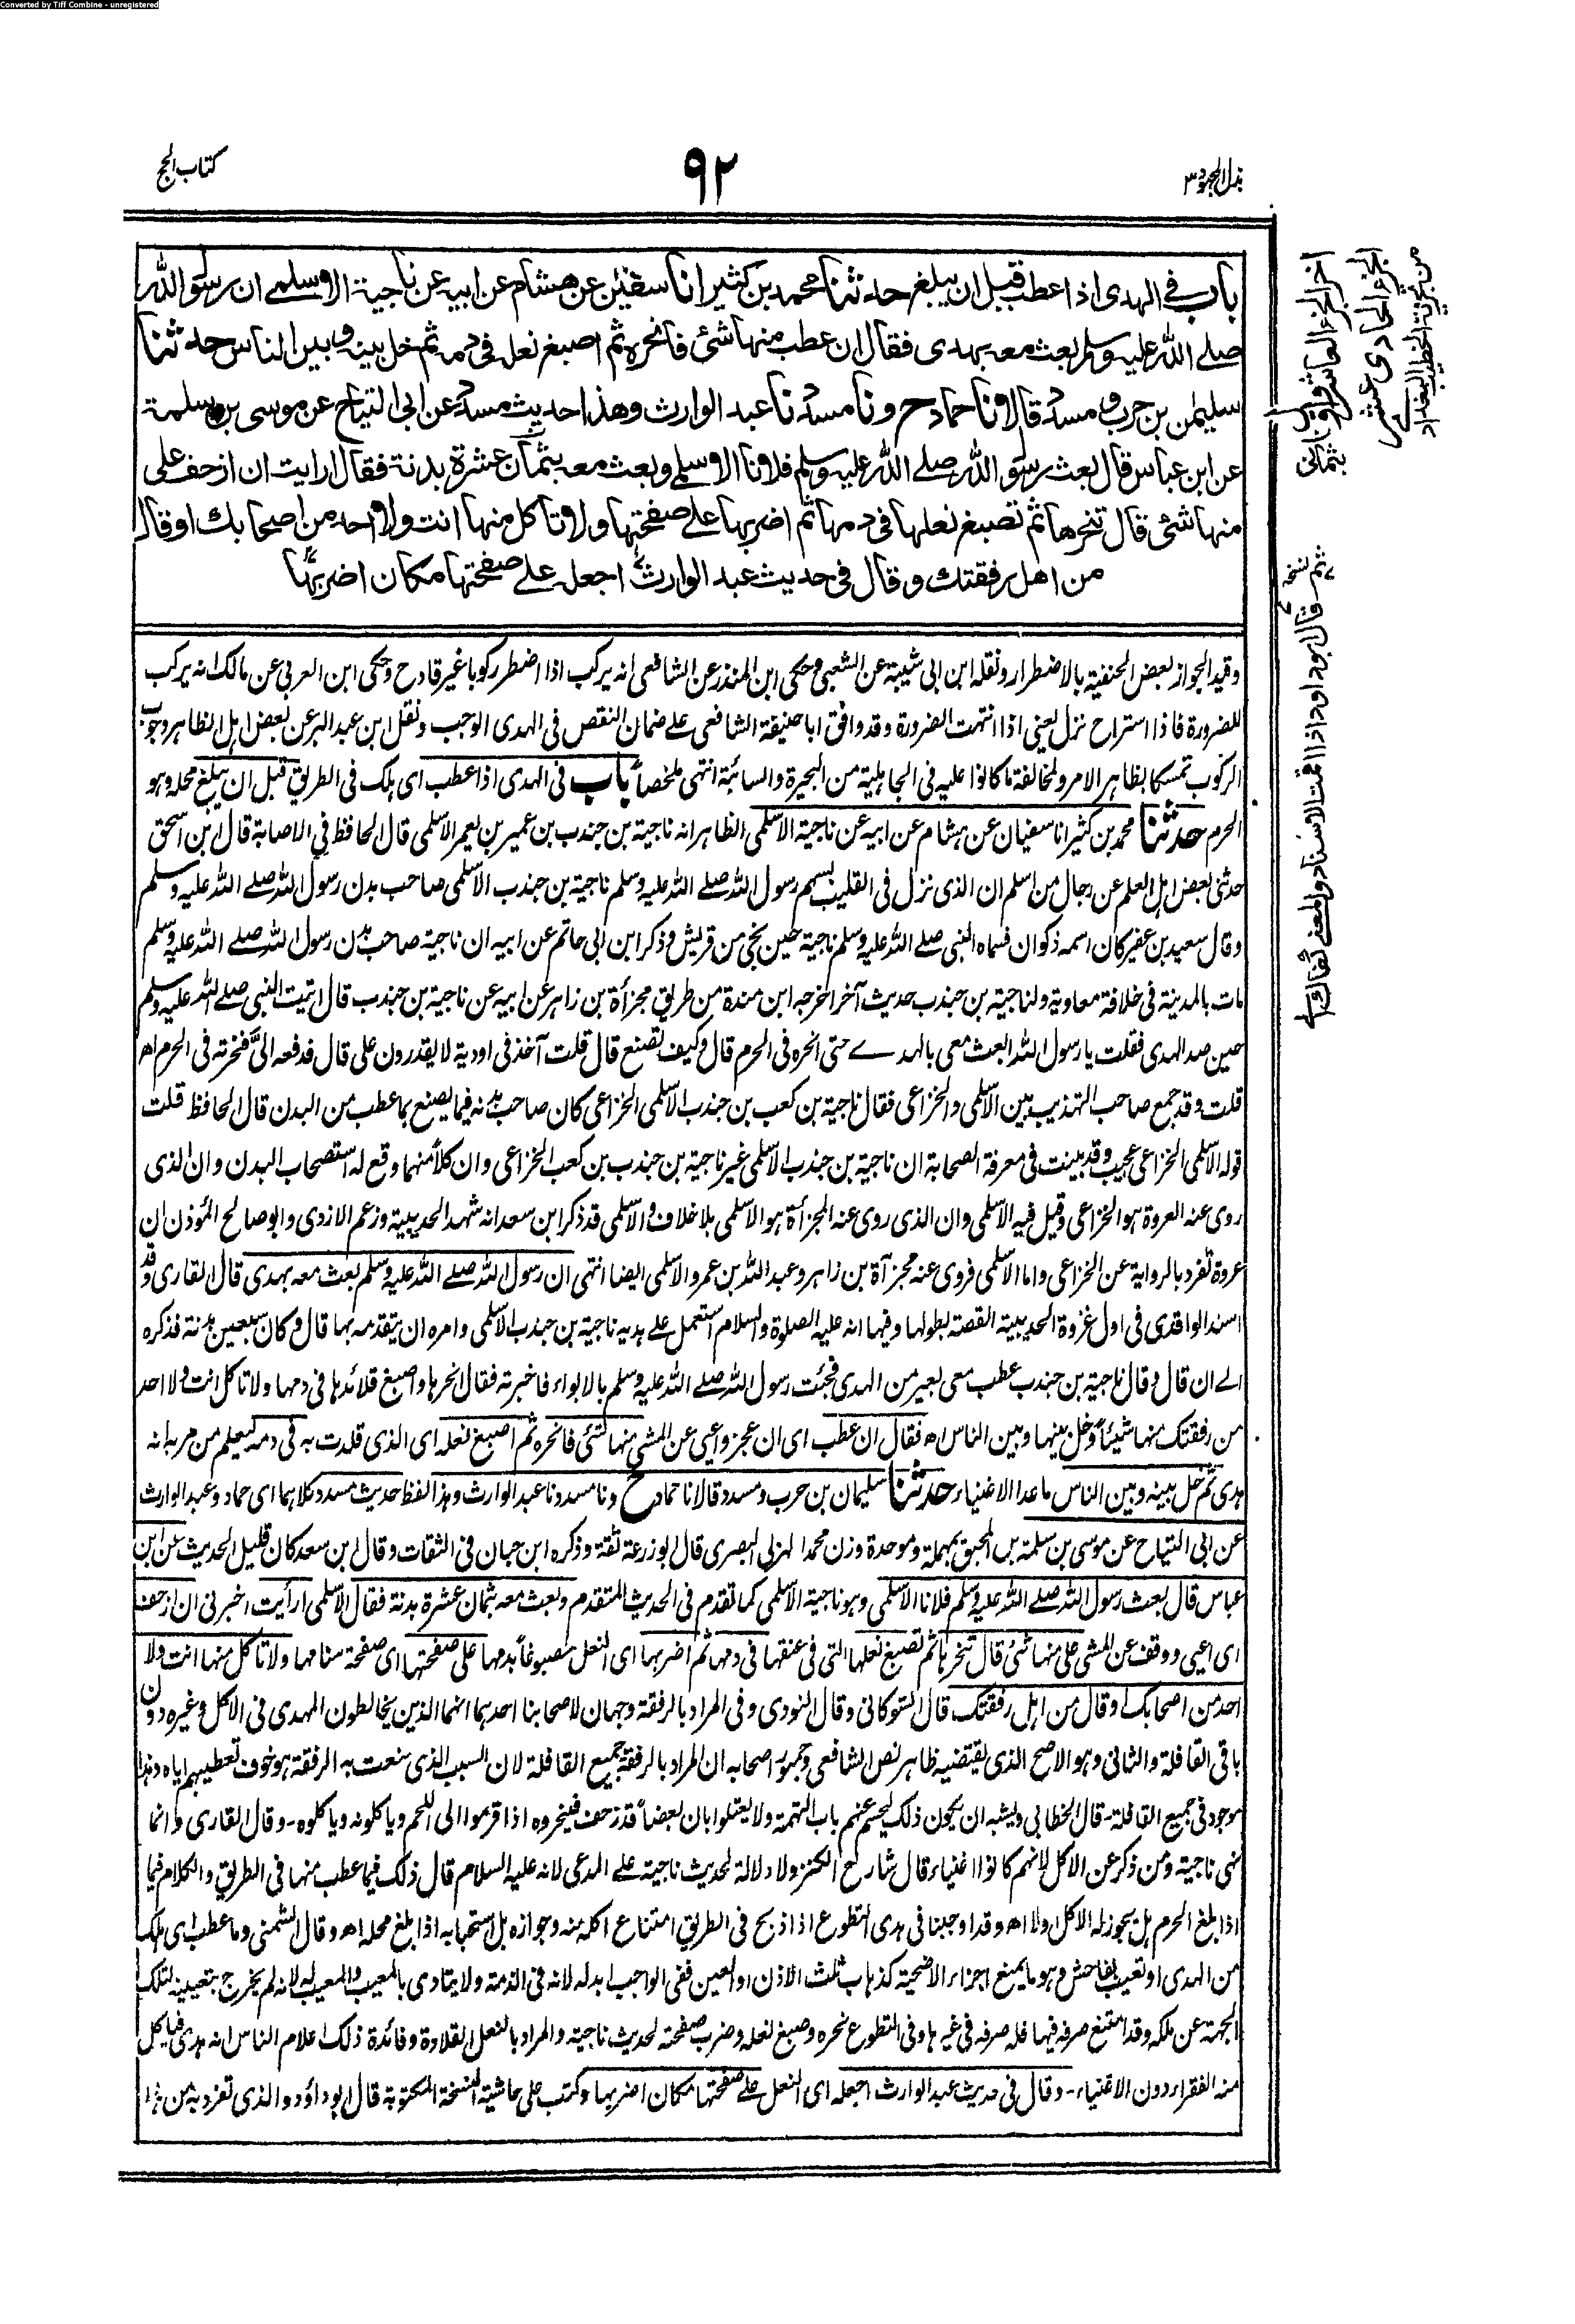 Converted by Tiff Combine - unregistered
بذل المجهود ٣
٩٢
كتاب الحج
باب في الهدى اذا عطب قبل ان يبلغ حدثنا محمد بن كثير انا سفين عن هشام عن ابيه عن ناجية الاسلمي ان رسول الله
صلى الله عليه وسلم بعث معه بهدى فقال ان عطب منها شئ فانحره ثم اصبغ نعله في دمه ثم خل بينه وبين الناس حدثنا
سليمن بن حرب و مسدد قالا نا حماد ح و نا مسدد نا عبد الوارث وهذا حديث مسدد عن ابي التياح عن موسى بن سلمة
عن ابن عباس قال بعث رسول الله صلى الله عليه وسلم فلانا الاسلمي وبعث معه بثمان عشرة بدنة فقال ارايت ان ازحف على
منها شئ قال تنحرها ثم تصبغ نعلها في دمها ثم اضربها على صفحتها ولا تاكل منها انت ولا احد من اصحابك او قال
من اهل رفقتك وقال في حديث عبد الوارث اجعله على صفحتها مكان اضربها
وقيد الجواز بعض الحنفية بالاضطرار ونقله ابن ابي شيبة عن الشعبي وحكى ابن المنذر عن الشافعي انه يركب اذا اضطر ركوبا غير قادح وحكى ابن العربي عن مالك انه يركب
للضرورة فاذا استراح نزل يعني اذا انتهت الضرورة وقد وافق ابا حنيفة الشافعي على ضمان النقص في الهدى الواجب ونقل ابن عبد البر عن بعض اهل الظاهر وجوب
الركوب تمسكا بظاهر الامر ولمخالفة ما كانوا عليه في الجاهلية من البحيرة والسائبة انتهى ملخصاً باب في الهدى اذا عطب اى هلك في الطريق قبل ان يبلغ محله وهو
الحرم حدثنا محمد بن كثير انا سفيان عن هشام عن ابيه عن ناجية الاسلمي الظاهر انه ناجية بن جندب بن عمير بن يعمر الاسلمي قال الحافظ في الاصابة قال ابن اسحق
حدثني بعض اهل العلم عن رجال من اسلم ان الذى نزل في القليب بسهم رسول الله صلى الله عليه وسلم ناجية بن جندب الاسلمي صاحب بدن رسول الله صلى الله عليه وسلم
وقال سعيد بن عفير كان اسمه ذكوان فسماه النبي صلى الله عليه وسلم ناجية حين نجى من قريش وذكر ابن ابي حاتم عن ابيه ان ناجية صاحب بدن رسول الله صلى الله عليه وسلم
مات بالمدينة في خلافة معاوية ولناجية بن جندب حديث آخر اخرجه ابن مندة من طريق مجزأة بن زاهر عن ابيه عن ناجية بن جندب قال اتيت النبي صلى الله عليه وسلم
حين صد الهدى فقلت يا رسول الله ابعث معي بالهدى حتى انحره في الحرم قال وكيف تصنع قال قلت آخذ في اودية لا يقدرون على قال فدفعه اليَّ فنحرته في الحرم اھ
قلت وقد جمع صاحب التهذيب بين الاسلمي والخزاعي فقال ناجية بن كعب بن جندب الاسلمي الخزاعي كان صاحب بدنه فيما يصنع بما عطب من البدن قال الحافظ قلت
قوله الاسلمي الخزاعي عجيب وقد بينت في معرفة الصحابة ان ناجية بن جندب الاسلمي غير ناجية بن جندب بن كعب الخزاعي وان كلاً منهما وقع له استصحاب البدن وان الذى
روى عنه العروة هو الخزاعي وقيل فيه الاسلمي وان الذى روى عنه المجزأة هو الاسلمي بلا خلاف والاسلمي قد ذكر ابن سعد انه شهد الحديبية وزعم الازدى وابو صالح المؤذن ان
عروة تفرد بالرواية عن الخزاعي واما الاسلمي فروى عنه مجزأة بن زاهر وعبد الله بن عمرو الاسلمي ايضا انتهى ان رسول الله صلى الله عليه وسلم بعث معه بهدى قال القارى وقد
اسند الواقدى في اول غزوة الحديبية القصة بطولها وفيها انه عليه الصلوة والسلام استعمل على هديه ناجية بن جندب الاسلمي وامره ان يتقدمه بها قال وكان سبعين بدنة فذكره
الى ان قال وقال ناجية بن جندب عطب معي بعير من الهدى فجئت رسول الله صلى الله عليه وسلم بالابواء فاخبرته فقال انحرها واصبغ قلائدها في دمها ولا تاكل انت ولا احد
من رفقتك منها شيئاً وخل بينها وبين الناس اھ فقال ان عطب اى ان عجز واعيى عن المشي منها شئ فانحره ثم اصبغ نعله اى الذى قلدت به في دمه ليعلم من مر به انه
هدى ثم خل بينه وبين الناس ما عدا الاغنياء حدثنا سليمان بن حرب ومسدد قالا نا حماد ح ونا مسدد نا عبد الوارث وهذا لفظ حديث مسدد كلاهما اى حماد وعبد الوارث
عن ابي التياح عن موسى بن سلمة بن المحبق بمهملة وموحدة وزن محمد الهزلي البصرى قال ابو زرعة ثقة وذكره ابن حبان في الثقات وقال ابن سعد كان قليل الحديث عن ابن
عباس قال بعث رسول الله صلى الله عليه وسلم فلانا الاسلمي وهو ناجية الاسلمي كما تقدم في الحديث المتقدم وبعث معه بثمان عشرة بدنة فقال الاسلمي ارأيت اخبرني ان ازحف
اى اعيى ووقف عن المشي على منها شئ قال تنحرها ثم تصبغ نعلها التي في عنقها في دمها ثم اضربها اى النعل مصبوغاً بدمها على صفحتها اى صفحة سنامها ولا تاكل منها انت ولا
احد من اصحابك او قال من اهل رفقتك قال الشوكاني وقال النووى وفي المراد بالرفقة وجهان لاصحابنا احدهما انهما الذين يخالطون المهدى في الاكل وغيره دون
باقي القافلة والثاني وهو الاصح الذى يقتضيه ظاهر نص الشافعي وجمهور اصحابه ان المراد بالرفقة جميع القافلة لان السبب الذى منعت به الرفقة هو خوف تعطيبهم اياه وهذا
موجود في جميع القافلة - قال الخطابي ويشبه ان يكون ذلك ليحسم عنهم باب التهمة ولا يعتلوا بان بعضاً قد زحف فينحروه اذا قرموا الى اللحم وياكلونه وياكلوه - وقال القارى وانما
نهى ناجية ومن ذكر عن الاكل لانهم كانوا اغنياء قال شارح الكنز ولا دلالة لحديث ناجية على المدعى لانه عليه السلام قال ذلك فيما عطب منها في الطريق والكلام فيما
اذا بلغ الحرم هل يجوز له الاكل اولا اھ وقد اوجبنا في هدى التطوع اذا ذبح في الطريق امتناع اكله منه وجوازه بل استحبابه اذا بلغ محله اھ وقال الشمني وما عطب اى هلك
من الهدى او تعيب بفاحش وهو ما يمنع اجزاء الاضحية كذهاب ثلث الاذن او العين ففي الواجب ابدله لانه في الذمة ولا يتادى بالمعيب والمعيب له لانه لم يخرج بتعيينه لتلك
الجهة عن ملكه وقد امتنع صرفه فيها فله صرفه في غيرها وفي التطوع نحره وصبغ نعله وضرب صفحته لحديث ناجية والمراد بالنعل القلادة وفائدة ذلك اعلام الناس انه هدى فياكل
منه الفقراء دون الاغنياء - وقال في حديث عبد الوارث اجعله اى النعل على صفحتها مكان اضربها وكتب على حاشية النسخة المكتوبة قال ابو داؤد والذى تفرد به من هذا
اخر الجزء العاشر
الجزء الحادى عشر
من تجزئة الخطيب البغدادى
بثمانى
ثم نسخة
قال ابو داود اذا اقمت الاسناد والمعنى كفاك